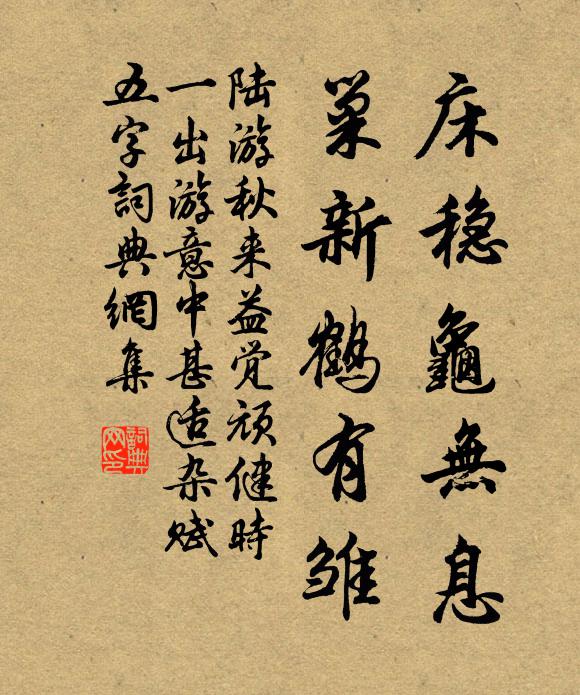 床稳龜無息
巢新鹤有雏
陆游秋来益觉顽健時
一出游意中甚适杂赋
五字詞典網集
詞典
网印